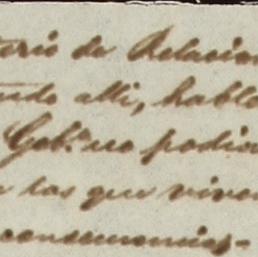 terio de Relacion
ando alli, hablo
Gob.no no podia
las que viven
consecuencias-